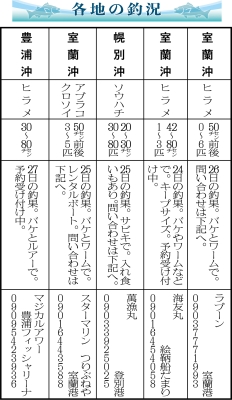 各地の釣況
室蘭沖
ヒラメ
50㌢前後
0～6匹
26日の釣果。バケとワームで。
問い合わせは下記へ。
ラブーン 室蘭港
09037771993
室蘭沖
ヒラメ
42～80㌢
1～3匹
24日の釣果。バケやワームなど
で。キープサイズ。予約受け付
け中。
海友丸 絵鞆船だまり
09016454058
幌別沖
ソウハチ
20～30㌢
30～80匹
25日の釣果。サビキで。入れ食
いもあり。問い合わせは下記へ。
萬漁丸 登別港
09033925025
室蘭沖
アブラコ
クロソイ
50㌢前後
3～5匹
25日の釣果。バケとワームで。
レンタルボート。問い合わせは
下記へ。
スターマリン つりぶねや
室蘭港
09016443588
豊浦沖
ヒラメ
30～80㌢
27日の釣果。バケとルアーで。
予約受け付け中。
マジカルアワー
豊浦フィッシャリーナ
09095423936